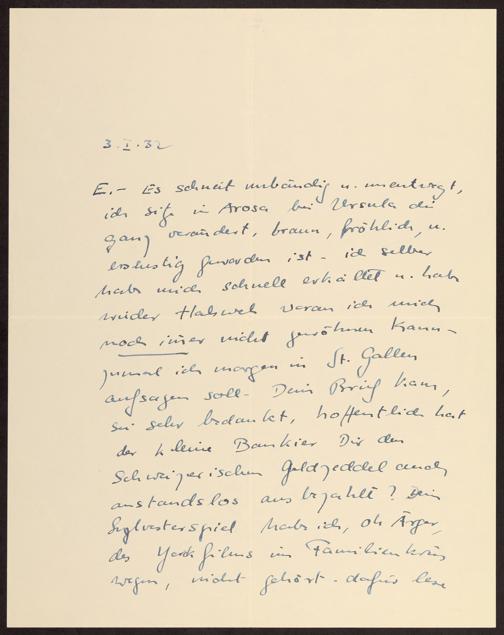 3.I.32
E.- Es schneit unbändig u. unentwegt,
ich sitze in Arosa bei Ursula die
ganz verändert, braun, fröhlich, u.
geworden ist - ich selber
habe mich schnell erkältet u. habe
wieder Halsweh woran ich mich
noch immer nicht gewöhnen kann -
zumal ich morgen in St. Gallen
aufsagen soll - Dein Brief kam,
sei sehr bedankt, hoffentlich hat
der kleine Bankier Dir den
Schweizerischen Geldzeddel auch
anstandslos ausbezahlt? Dein
Sylvesterspiel habe ich, oh Ärger,
des Yorkfilms im Familienkreis
wegen, nicht gehört - dafür lese